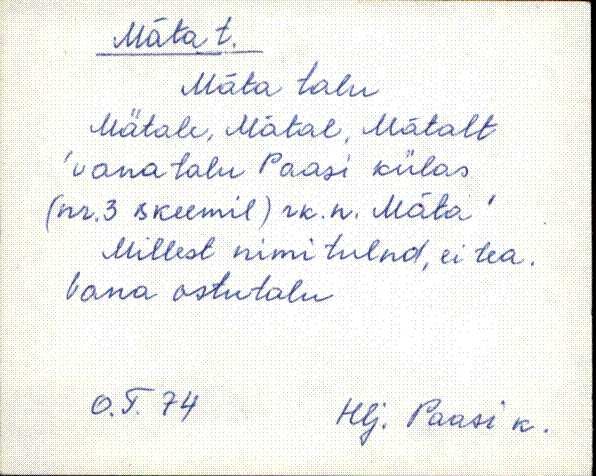 Mäta t.
Mäta talu
Mätale, Mätal, Mätalt
'vana talu Paasi külas
(nr. 3 skeemil) rk. n. Mäta'
Millest nimi tulnd, ei tea.
Vana ostutalu
O.T. 74
Hlj. Paasi k.